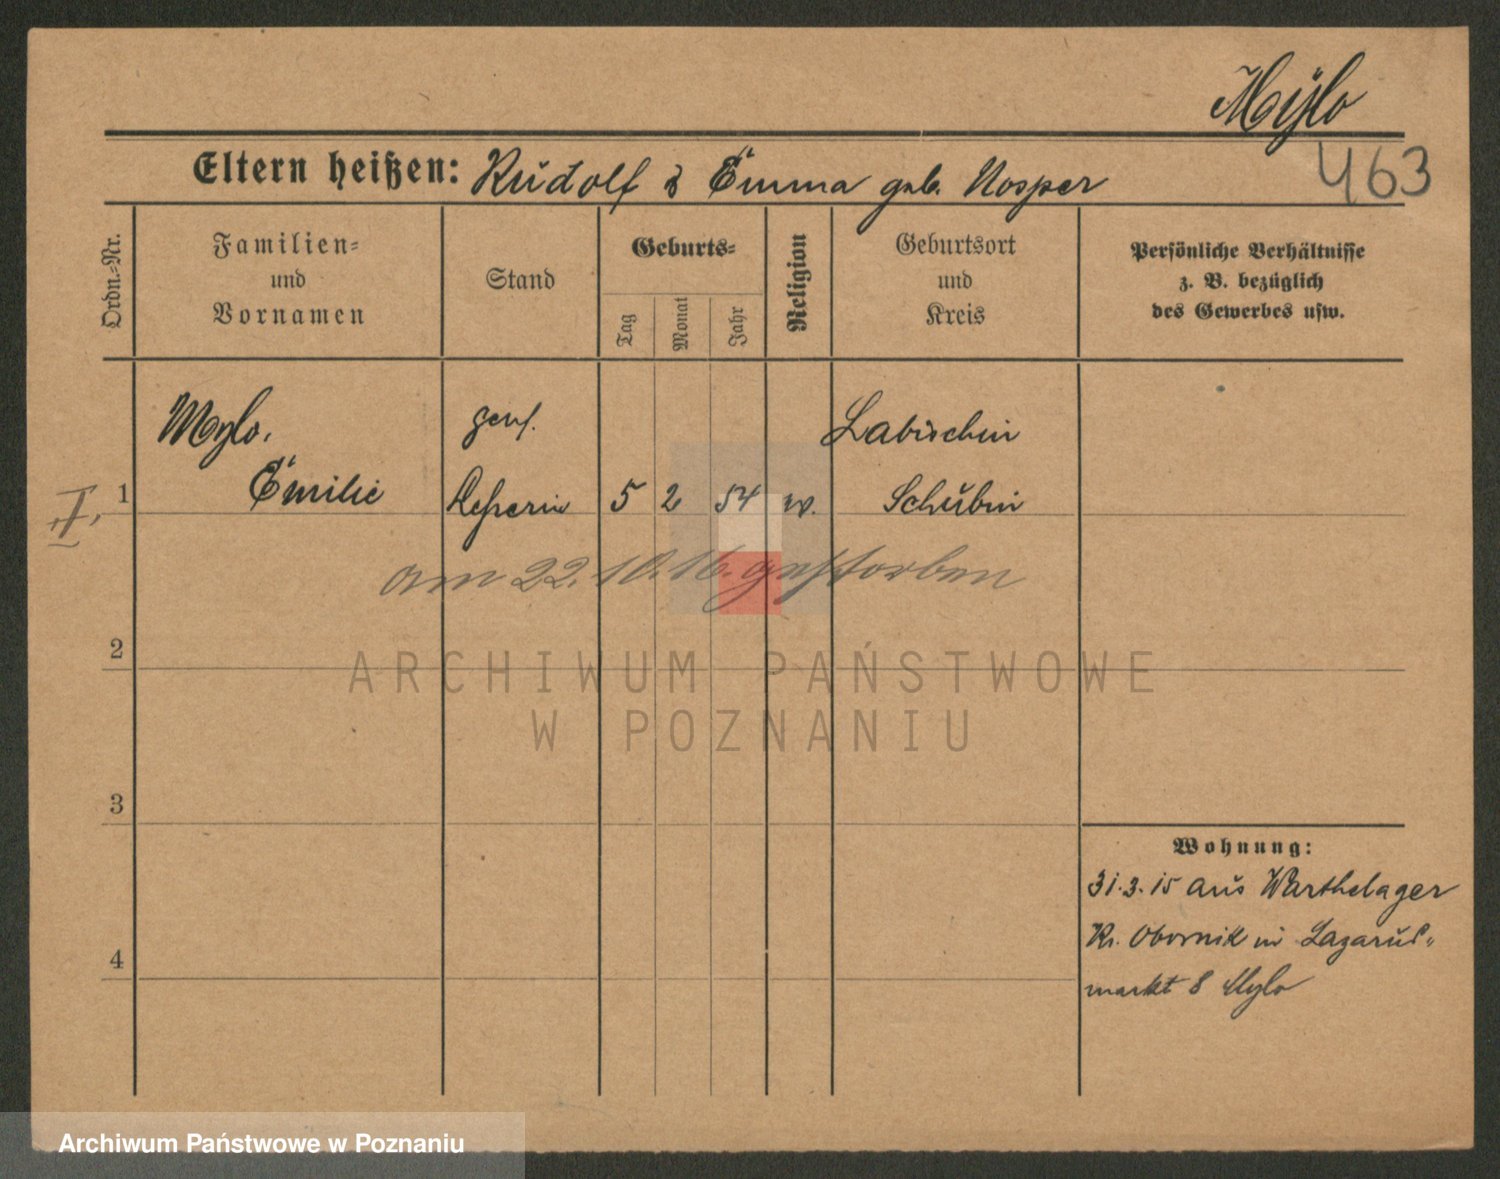 Mÿlo
463
Eltern heißen: Rudolf & Emma geb. Nosper
Ordn.=Nr.
Familien=
und
Vornamen
Stand
Geburts=
Tag
Monat
Jahr
Religion
Geburtsort
und
Kreis
Persönliche Verhältnisse
z. B. bezüglich
des Gewerbes usw.
Mylo.
gew.
Labischin
I.
1
Emilie
5 2 54
Schubin
am 22. 10. 16. gestorben
2
ARCHIWUM PAŃSTWOWE
W POZNANIU
3
Wohnung:
31.3.15 aus Warthelager
Kr. Obornik in Lazarus-
4
markt 8 Mylo
Archiwum Państwowe w Poznaniu